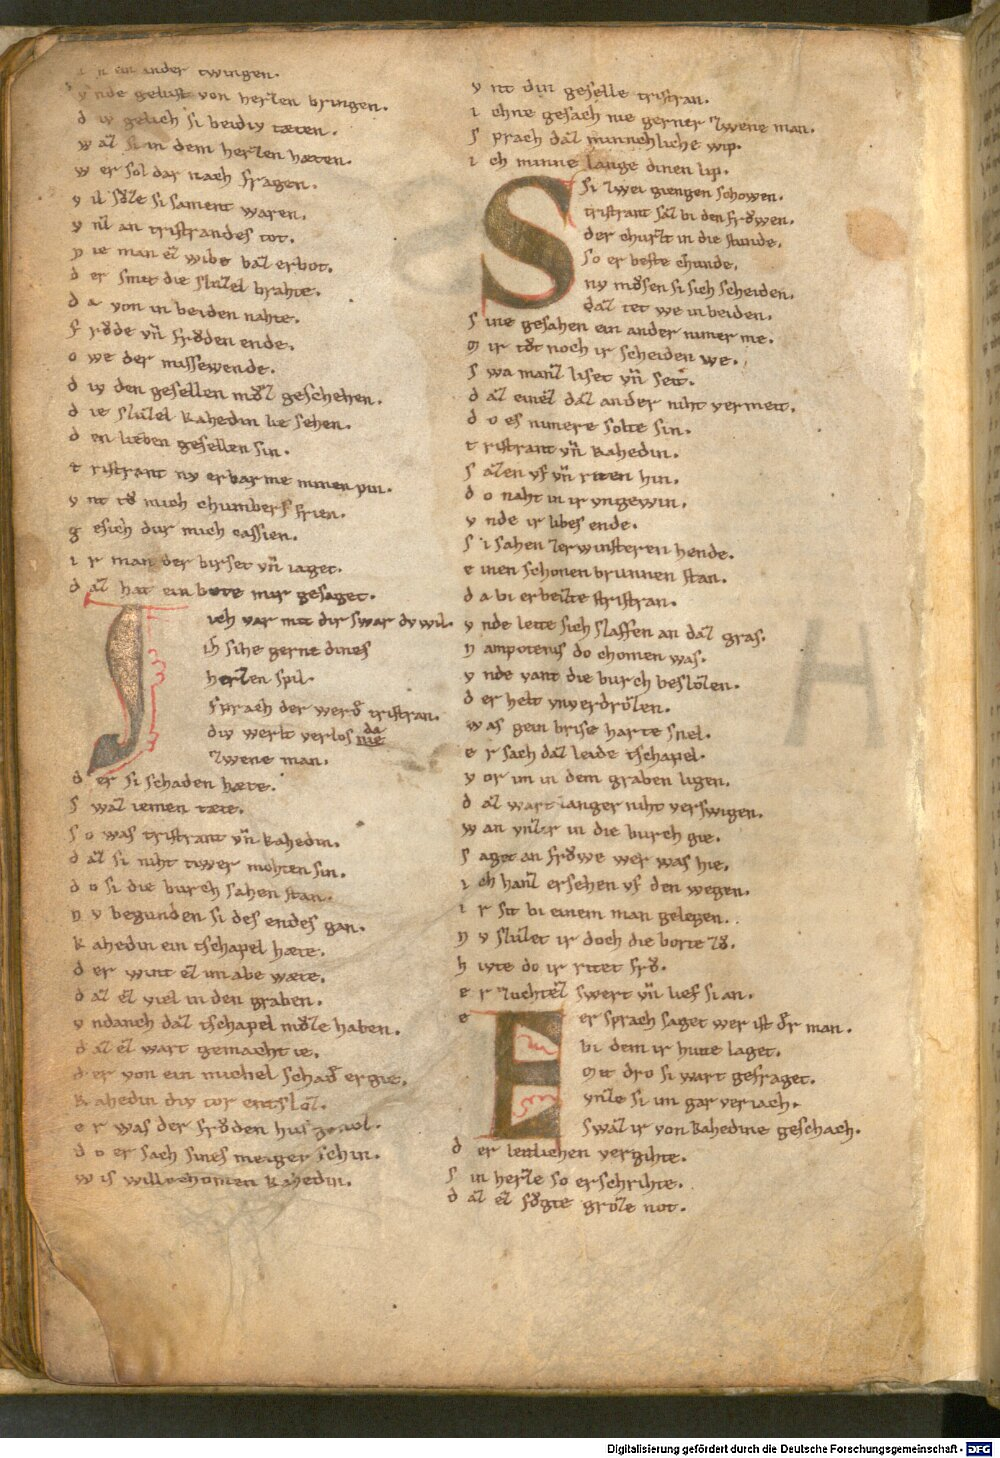 i n ein ander twingen.
v nde gelust von herzen bringen.
d iv gelich si beidiv tæten.
w az si in dem herzen hæten.
w er sol dar nach fragen.
v il sůze si sament waren.
v nz an tristrandes tot.
v ie man ez wibe baz erbot.
d er smit die sluzel brahte.
d a von in beiden nahte.
f rŏde vn̄ frŏden ende.
o we der missewende.
d iv den gesellen mŏz geschehen.
d ie sluzel kahedin lie sehen.
d en lieben gesellen sin.
t ristrant nv erbarme minen pin.
v nt tů mich chumbers frien.
g esich dur mich cassien.
i r man der birset vn̄ iaget.
d az hat ein bote mir gesaget.
ich var mit dir swar dv wil.
ih sihe gerne dines
herzen spil.
sprach der werd tristran.
div werlt verlos nie da
zwene man.
d er si schaden hæte.
s waz iemen tæte.
s o was tristrant vn̄ kahedin.
d az si niht tiwer mohten sin.
d o si die burch sahen stan.
n v begunden si des endes gan.
k ahedin ein tschapel hæte.
d er wint ez im abe wæte.
d az ez viel in den graben.
v ndanch daz tschapel mŏze haben.
d az ez wart gemacht ie.
d er von ein michel schad ergie.
k ahedin div tor entsloz.
e r was der frŏden hus genoz.
d o er sach sines meiger schin.
w is willechomen kahedin.
v nt din geselle tristran.
i chne gesach nie gerner zwene man.
s prach daz minnehliche wip.
i ch minne lange dinen lip.
Si zwei giengen schowen.
tristrant saz bi den frŏwen.
der churzt in die stunde.
so er beste chunde.
nv mŏsen si sich scheiden.
daz tet we in beiden.
s ine gesahen ein ander nimer me.
m ir tŏt noch ir scheiden we.
s wa manz liset vn̄ seit.
d az einez daz ander niht vermeit.
d o es nimere solte sin.
t ristrant vn̄ kahedin.
s azen vf vn̄ riten hin.
d o naht in ir vngewin.
v nde ir libes ende.
s i sahen zer winsteren hende.
e inen schonen brunnen stan.
d a bi erbeizte stristran.
v nde leite sich slaffen an daz gras.
n ampotenis do chomen was.
v nde vant die burch beslozen.
d er helt vnverdrozen.
w as gein brise harte snel.
e r sach daz leide tschapel.
v or im in dem graben ligen.
d az wart langer niht verswigen.
w an vnz er in die burch gie.
s aget an frŏwe wer was hie.
i ch hanz ersehen vf den wegen.
i r sit bi einem man gelegen.
n v sluzet ir doch die borte zů.
h ivte do ir ritet frů.
e r zuchtez swert vn̄ lief si an.
e Er sprach saget wer ist d̄r man.
bi dem ir hine laget.
mit dro si wart gefraget.
vnze si im gar veriach.
swaz ir von kahedine geschach.
d er leitlichen vergihte.
s in herze so erschrihte.
d az ez fŏgte groze not.
Digitalisierung gefördert durch die Deutsche Forschungsgemeinschaft - DFG